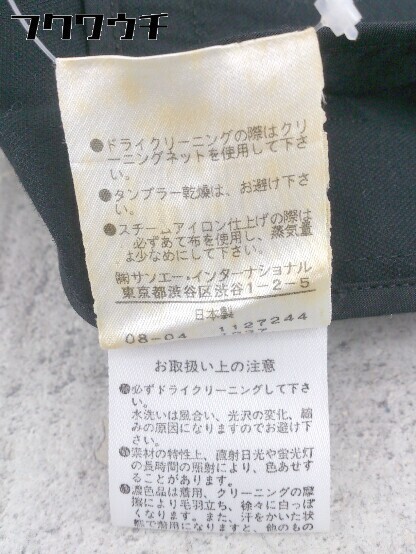 フクワウチ
●ドライクリーニングの際はクリ
ーニングネットを使用して下さ
い。
●タンブラー乾燥は、お避け下さ
い。
●スチームアイロン仕上げの際は
必ずあて布を使用し、蒸気量
は少なめにして下さい。
㈱サンエー・インターナショナル
東京都渋谷区渋谷1-2-5
日本製
08-04 1127244
お取扱い上の注意
必ずドライクリーニングして下さ
い。
水洗いは風合い、光沢の変化、縮
みの原因になりますのでお避け下
さい。
素材の特性上、直射日光や蛍光灯
の長時間の照射により、色あせす
ることがあります。
濃色品は着用、クリーニングの摩
擦により毛羽立ち、徐々に白っぽ
くなります。また、汗をかいた状
態で着用になりますと、他のもの